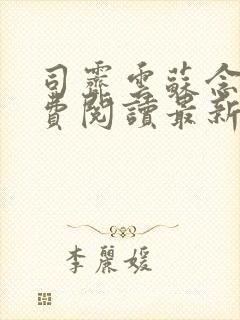 司霏雲蘇念
費閱讀最新
李麗媛